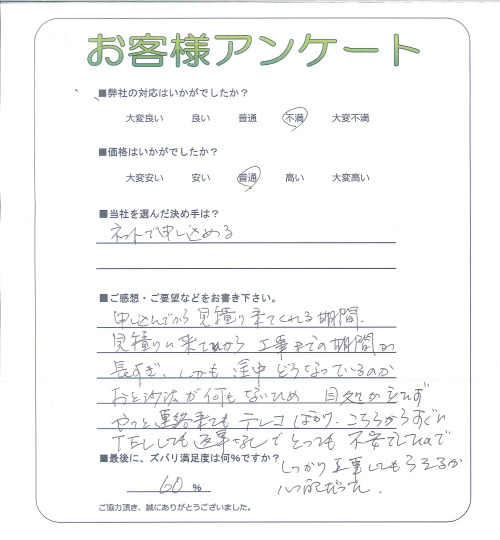 お客様アンケート
■弊社の対応はいかがでしたか？
大変良い 良い 普通 不満 大変不満
■価格はいかがでしたか？
大変安い 安い 普通 高い 大変高い
■当社を選んだ決め手は？
ネットで申し込める
■ご感想・ご要望などをお書き下さい。
申し込んでから見積り来てくれる期間、
見積りに来てから工事までの期間が
長すぎ、しかも途中どうなっているのか
おと沙汰が何もないため 目処が立たず
やっと連絡来ても テレコばかり、こちらからすぐに
TELしても返事なしで とっても不安でしたので
しっかり工事してもらえるか
心配だった。
■最後に、ズバリ満足度は何%ですか？
60 %
ご協力頂き、誠にありがとうございました。